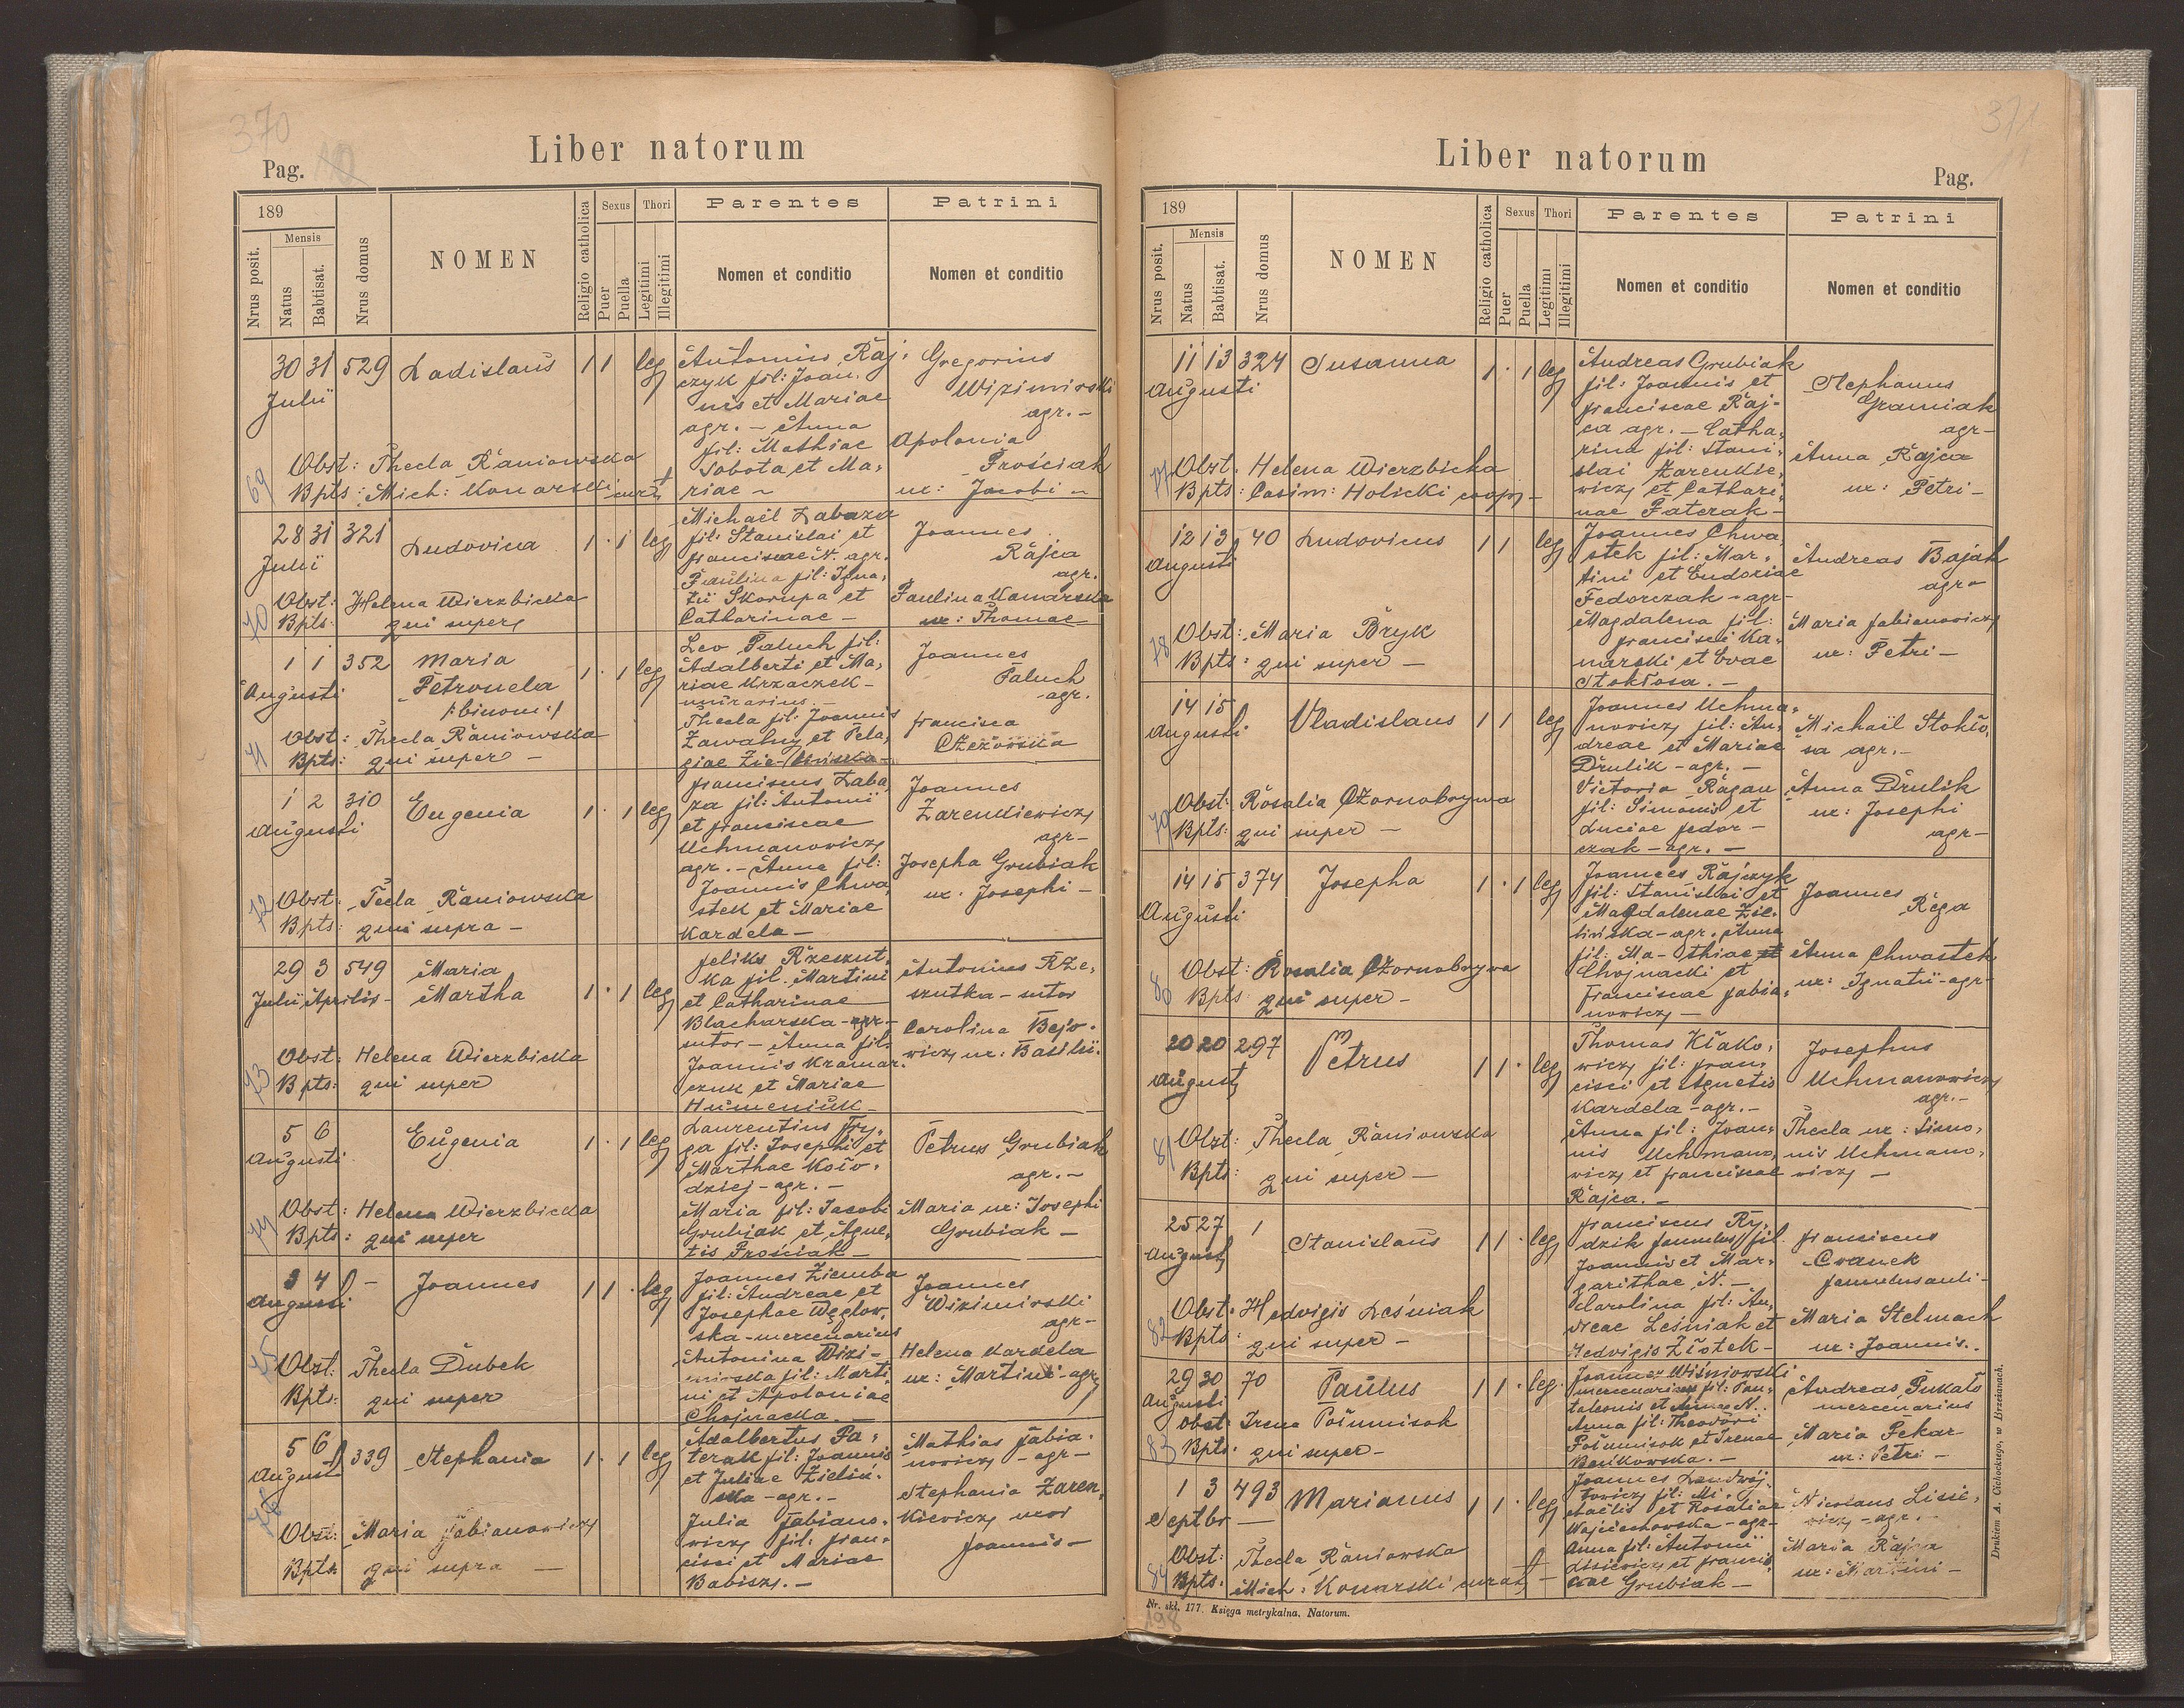 370
Liber natorum
Pag.
189
Nrus posit.
Mensis
Natus
Babtisat.
Nrus domus
NOMEN
Religio catholica
Sexus
Puer
Puella
Thori
Legitimi
Illegitimi
Parentes
Nomen et conditio
Patrini
Nomen et conditio
30 31 529 Ladislaus 1 1 leg
Julii
Antonius Raj-
czyk fil: Joan-
nis et Mariae
agr. - Anna
fil: Mathiae
Sobota et Ma-
riae -
Gregorius
Wizimirski
agr. -
Apolonia
Prościak
ux: Jacobi -
69
Obst: Thecla Raniowska
Bpts: Mich: Konarski
28 31 321 Ludovica 1 · 1 leg
Julii
Michaël Labaza
fil: Stanislai et
Franciscae N. agr.
Paulina fil: Igna-
tii Skorupa et
Catharinae -
Joannes
Rajca
agr.
Paulina Kanarska
ux: Thomae
70
Obst: Helena Wierzbicka
Bpts: qui super
1 1 352 Maria 1 · 1 leg
Augusti
Petronela
/:binom:/
Leo Paluch fil:
Adalberti et Ma-
riae Krzaczek -
murarius. -
Thecla fil: Joannis
Zawalny et Pela-
giae Zie-lińska -
Joannes
Paluch
agr.
Francisca
71
Obst: Thecla Raniowska
Bpts: qui super -
1 2 310 Eugenia 1 · 1 leg
Augusti
Franciscus Laba-
za fil: Antonii
et Franciscae
Uchmanowicz
agr. - Anna fil:
Joannis Chwa-
stek et Mariae
Kardela -
Joannes
Zarenkiewicz
agr -
Josepha Grubiak
ux. Josephi -
72
Obst: Tecla Raniowska
Bpts: qui supra -
29 3 549 Maria
Julii Aprilis - Martha 1 · 1 leg
Feliks Rzeszut-
ka fil. Martini
et Catharinae
Blacharska - agr. -
sutor - Anna fil:
Joannis Kramar-
czuk et Mariae
Humeniuk -
Antonius Rze-
szutka - sutor
Carolina Bejo-
wicz ux: Basilii.
73
Obst: Helena Wierzbicka
Bpts: qui super
5 6 Eugenia 1 · 1 leg
Augusti
Laurentius Fry-
ga fil: Josephi et
Marthae Koło-
dziej - agr. -
Maria fil: Jacobi
Grubiak et Agne-
tis Prościak -
Petrus Grubiak
agr. -
Maria ux: Josephi
Grubiak -
74
Obst: Helena Wierzbicka
Bpts: qui super
3 4 - Joannes 1 1 · leg
Augusti
Joannes Ziemba
fil: Andreae et
Josephae Węglow-
ska - mercenarius
Antonina Wizi-
mirska fil: Marti-
ni et Apoloniae
Chojnacka. -
Joannes
Wizimirski
agr -
Helena Kardela
ux: Martini - agr
75
Obst: Thecla Dubek
Bpts: qui super
5 6 339 Stephania 1 · 1 leg
August
Adalbertus Pa-
terak fil: Joannis
et Juliae Zieliń-
ska - agr. -
Julia Fabiano-
wicz fil: Fran-
cisci et Mariae
Babisz. -
Mathias Fabia-
nowicz - agr -
Stephania Zaren-
kiewicz uxor
Joannis -
76
Obst: Maria Fabianowicz
Bpts: qui supra -
371
Liber natorum
Pag.
189
Nrus posit.
Mensis
Natus
Babtisat.
Nrus domus
NOMEN
Religio catholica
Sexus
Puer
Puella
Thori
Legitimi
Illegitimi
Parentes
Nomen et conditio
Patrini
Nomen et conditio
11 13 324 Susanna 1 · 1 leg
Augusti
Andreas Grubiak
fil: Joannis et
Franciscae Raj-
ca agr. - Catha-
rina fil: Stani-
slai Zarenkie-
wicz et Cathari-
nae Paterak -
Stephanus
Gramiak
agr -
Anna Rajca
ux: Petri -
77
Obst. Helena Wierzbicka
Bpts: Casim: Holicki coop -
12 13 40 Ludovicus 1 1 leg
Augusti
Joannes Chwa-
stek fil: Mar-
tini et Eudoxiae
Fedorczak - agr -
Magdalena fil:
Francisci Ka-
narski et Evae
Stokłosa. -
Andreas Bajak
agr -
Maria Fabianowicz
ux: Petri -
78
Obst: Maria Bryk
Bpts: qui super -
14 15 Vladislaus 1 1 leg
Augusti.
Joannes Uchma-
nowicz fil: An-
dreae et Mariae
Drulik - agr. -
Victoria Ragan
fil: Simonis et
Luciae Fedor-
czak - agr. -
Michaël Stokło-
sa agr. -
Anna Drulik
ux: Josephi
agr -
79
Obst: Rosalia Czornobrywa
Bpts: qui super -
14 15 374 Josepha 1 · 1 leg
Augusti
Joannes Rajczyk
fil: Stanislai et
Magdalenae Zie-
lińska - agr. Anna
fil: Ma-thiae et
Chojnacki et
Franciscae Fabia-
nowicz -
Joannes
Rega
Anna Chwastek
ux: Ignatii - agr -
80
Obst: Rosalia Czornobrywa
Bpts qui super -
20 20 297 Petrus 1 1 · leg
August
Thomas Kłako-
wicz fil: Fran-
cisci et Agnetis
Kardela - agr. -
Anna fil: Joan-
nis Uchmano-
wicz et Franciscae
Rajca. -
Josephus
Uchmanowicz
agr. -
Thecla ux: Simo-
nis Uchmano-
wicz -
81
Obst: Thecla Raniowska
Bpts: qui super -
25 27 1 Stanislaus 1 1 · leg
August
Franciscus Ry-
dzik famulus fil.
Joannis et Mar-
garithae N. -
Carolina fil: An-
dreae Leśniak et
Hedvigis Złotek -
Franciscus
Cvanek
famulus auli -
Maria Stelmach
ux: Joannis..
82
Obst. Hedvigis Leśniak
Bpts: qui super -
29 30 70 Paulus 1 1 · leg.
Augusti
Joannes Wiśniowski
mercenarius fil: Pan-
taleonis et Annae N..
Anna fil: Theodori
et Irenae
Bańkowska. -
Andreas Pukało
mercenarius
Maria Pekar
ux: Petri -
83
Obst: Irena
Bpts: qui super -
1 3 493 Marianus 1 1 · leg
Septbr -
Joannes
fil: Mi-
chaëlis et Rosaliae
Wojciechowska - agr -
Anna fil: Antonii
Lisiewicz et Francis-
cae Grubiak -
Nicolaus Lisie-
wicz - agr. -
Maria Rajca
ux: Martini -
84
Obst: Thecla Raniowska
Bpts: Mich: Konarski curat -
Nr. skł. 177. Księga metrykalna. Natorum.
198
Drukiem A. Cichockiego, w Brzeżanach.